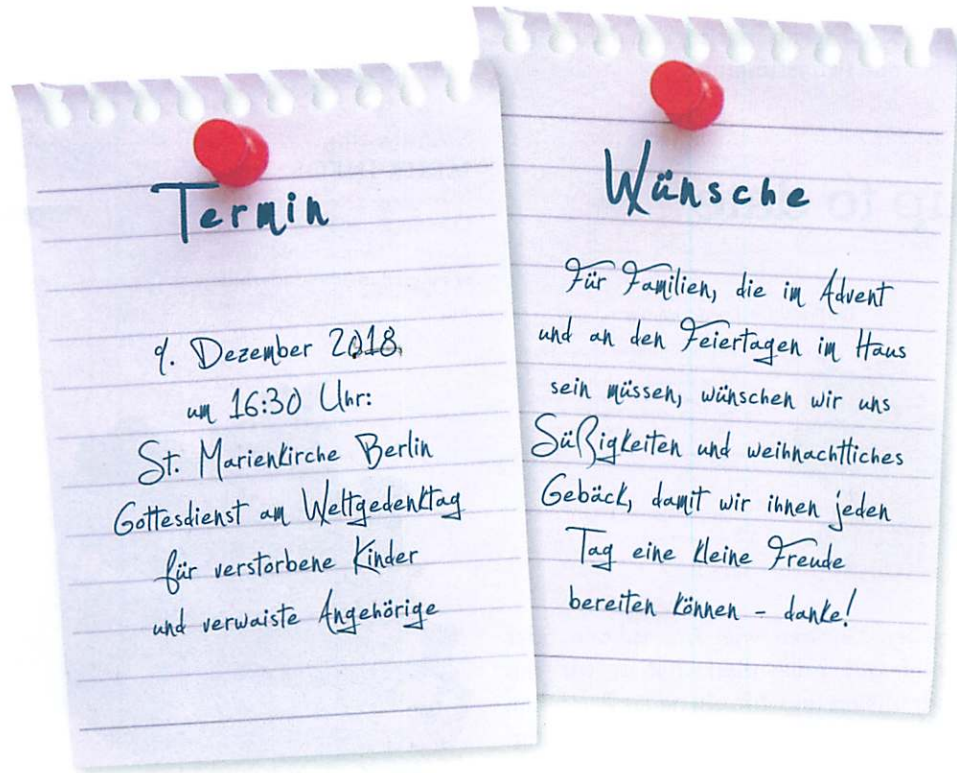 Termin
9. Dezember 2018,
um 16:30 Uhr:
St. Marienkirche Berlin
Gottesdienst am Weltgedenktag
für verstorbene Kinder
und verwaiste Angehörige
Wünsche
Für Familien, die im Advent
und an den Feiertagen im Haus
sein müssen, wünschen wir uns
Süßigkeiten und weihnachtliches
Gebäck, damit wir ihnen jeden
Tag eine kleine Freude
bereiten können - danke!